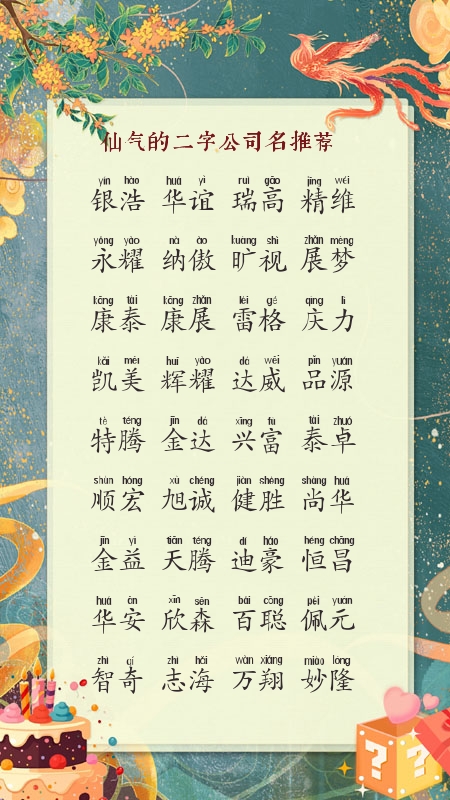 仙气的二字公司名推荐
yín hào huá yì ruì gāo jīng wéi
银浩 华谊 瑞高 精维
yǒng yào nà ào kuàng shì zhǎn mèng
永耀 纳傲 旷视 展梦
kāng tài kāng zhǎn léi gé qìng lì
康泰 康展 雷格 庆力
kǎi měi huī yào dá wēi pǐn yuán
凯美 辉耀 达威 品源
tè téng jīn dá xīng fù tài zhuó
特腾 金达 兴富 泰卓
shùn hóng xù chéng jiàn shèng shàng huá
顺宏 旭诚 健胜 尚华
jīn yì tiān téng dí háo héng chāng
金益 天腾 迪豪 恒昌
huá ān xīn sēn bǎi cōng pèi yuán
华安 欣森 百聪 佩元
zhì qí zhì hǎi wàn xiáng miào lóng
智奇 志海 万翔 妙隆
? ?